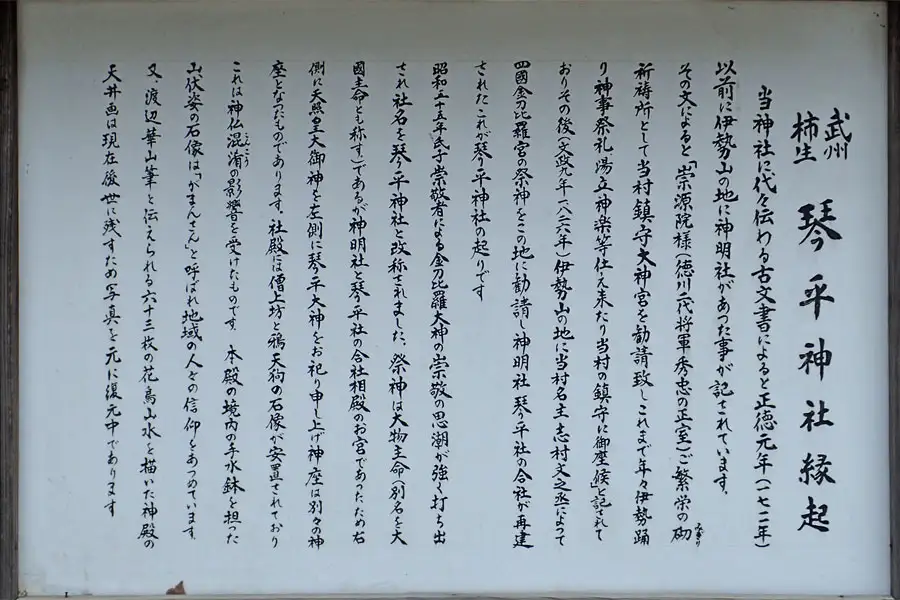 武州
柿生
琴平神社縁起
当神社に代々伝わる古文書によると正徳元年(一七一一年)
以前に伊勢山の地に神明社があった事が記されています。
その文によると「崇源院様(徳川二代将軍秀忠の正室)ご繁栄の砌
みぎり
祈祷所として当村鎮守大神宮を勧請致しこれまで年々伊勢踊
り神事祭礼湯立神楽等仕え来たり当村の鎮守に御座候」と記されて
おりその後(文政九年一八二六年)伊勢山の地に当村名主志村文之丞によって
四國金刀比羅宮の祭神をこの地に勧請し神明社琴平社の合社が再建
されたこれが琴平神社の起りです
昭和二十五年氏子崇敬者による金刀比羅大神の崇敬の思潮が強く打ち出
され社名を琴平神社と改称されました。祭神は大物主命(別名を大
國主命とも称す)であるが神明社と琴平社の合社相殿のお宮であったため右
側に天照皇大御神を左側に琴平大神をお祀り申し上げ神座は別々の神
座となったものであります。社殿には僧上坊と鴉天狗の石像が安置されており
これは神仏混淆の影響を受けたものです。本殿の境内の手水鉢を担った
こんこう
山伏姿の石像は「がまんさん」と呼ばれ地域の人々の信仰をあつめています。
又、渡辺華山筆と伝えられる六十三枚の花鳥山水を描いた神殿の
天井画は現在後世に残すため写真を元に復元中であります